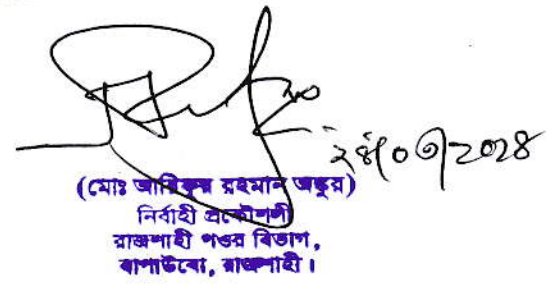 ২৪/০৩/২০২৪
(মোঃ আরিফুর রহমান অঙ্কুর)
নির্বাহী প্রকৌশলী
রাজশাহী পওর বিভাগ,
বাপাউবো, রাজশাহী।